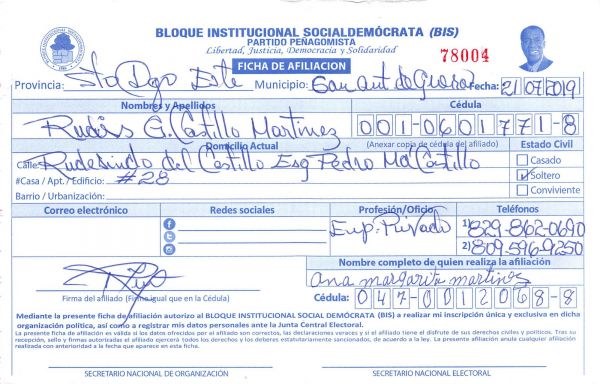 BLOQUE INSTITUCIONAL SOCIALDEMÓCRATA (BIS)
PARTIDO PEÑAGOMISTA
Libertad, Justicia, Democracia y Solidaridad
78004
FICHA DE AFILIACION
Provincia: Sto Dgo Este Municipio: San Ant. de Guerra Fecha: 21/07/2019
Nombres y Apellidos Cédula
Rudiss G. Castillo Martinez 001-0601771-8
Domicilio Actual (Anexar copia de cédula del afiliado) Estado Civil
Calle: Rudesindo del Castillo Esq Pedro Ma Castillo Casado
#Casa / Apt. / Edificio: #28 Soltero
Barrio / Urbanización: Conviviente
Correo electrónico Redes sociales Profesión/Oficio Teléfonos
Emp. Privado 1) 829-862-0690
2) 809-596-9250
Nombre completo de quien realiza la afiliación
Ana margarita martinez
Firma del afiliado (Firma igual que en la Cédula) Cédula: 047-0012068-8
Mediante la presente ficha de afiliación autorizo al BLOQUE INSTITUCIONAL SOCIAL DEMÓCRATA (BIS) a realizar mi inscripción única y exclusiva en dicha
organización política, así como a registrar mis datos personales ante la Junta Central Electoral.
La presente ficha de afiliación es válida si los datos ofrecidos por el afiliado son correctos, las declaraciones veraces y si el afiliado tiene el disfrute de sus derechos civiles y políticos. Tras su
recepción, sello y firmas autorizadas el afiliado ejercerá todos los derechos y los deberes estatutariamente sancionados, de acuerdo a la ley. La presente afiliación anula cualquier afiliación
realizada con anterioridad a la fecha que aparece en esta ficha.
SECRETARIO NACIONAL DE ORGANIZACIÓN SECRETARIO NACIONAL ELECTORAL